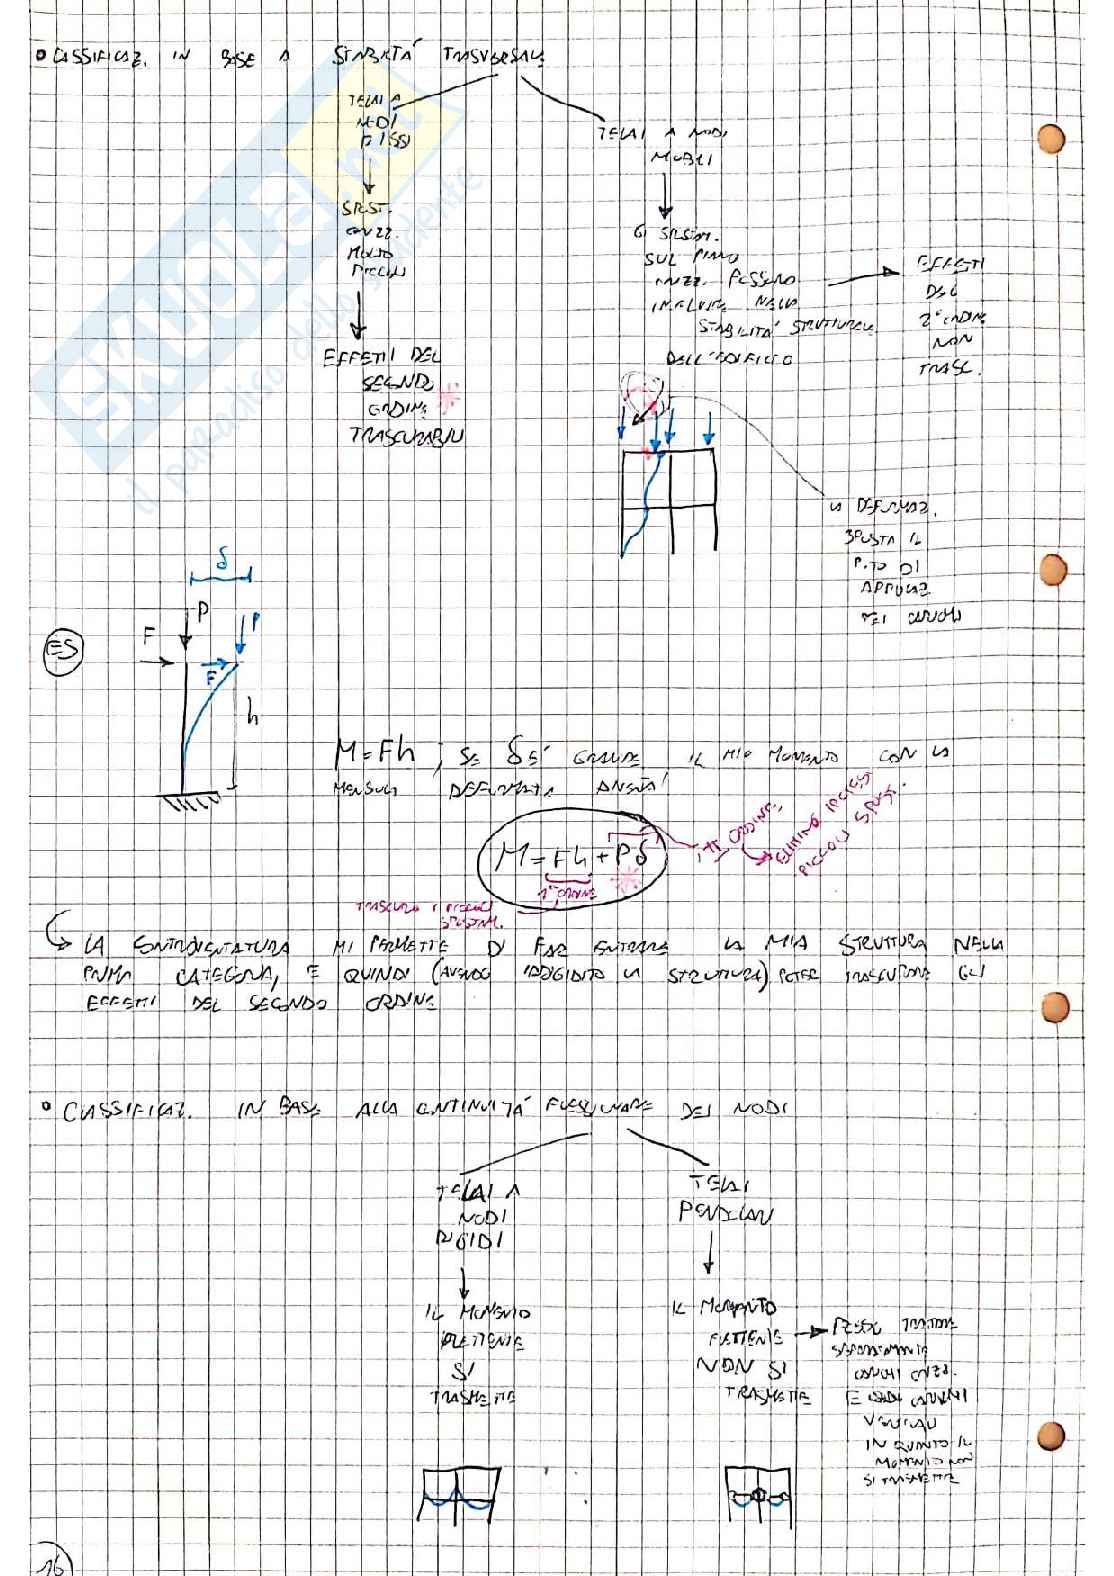 CLASSIFICAZ. IN BASE A STABILITÁ TRASVERSALE
TELAI A
NODI
FISSI
SPOST.
ORIZZ.
MOLTO
PICCOLI
EFFETTI DEL
SECONDO
ORDINE *
TRASCURABILI
TELAI A NODI
MOBILI
GLI SPOSTAM.
SUL PIANO
ORIZZ. POSSONO
INFLUIRE NELLA
STABILITÁ STRUTTURALE
DELL'EDIFICIO
EFFETTI
DEL
2° ORDINE
NON
TRASC.
LA DEFORMAZ.
SPOSTA IL
P.TO DI
APPLICAZ.
DEI CARICHI
ES
δ
P
P
F
F
h
M = Fh ; SE δ É GRANDE IL MIO MOMENTO CON LA
MENSOLA DEFORMATA DIVENTA
M = Fh + Pδ
1° ORDINE
II ORDINE
ELIMINO IPOTESI
PICCOLI SPOST.
TRASCURO I PICCOLI
SPOSTAM.
LA CONTROVENTATURA MI PERMETTE DI FAR ENTRARE LA MIA STRUTTURA NELLA
PRIMA CATEGORIA, E QUINDI (AVENDO IRRIGIDITO LA STRUTTURA) POTER TRASCURARE GLI
EFFETTI DEL SECONDO ORDINE
CLASSIFICAZ. IN BASE ALLA CONTINUITÁ FLESSIONALE DEI NODI
TELAI A
NODI
RIGIDI
IL MOMENTO
FLETTENTE
SI
TRASMETTE
TELAI
PENDOLARI
IL MOMENTO
FLETTENTE
NON SI
TRASMETTE
POSSO TRATTARE
SEPARATAMENTE
CARICHI ORIZZ.
E CARICHI
VERTICALI
IN QUANTO IL
MOMENTO NON
SI TRASMETTE
16
SKUOLA.net
il paradiso dello studente